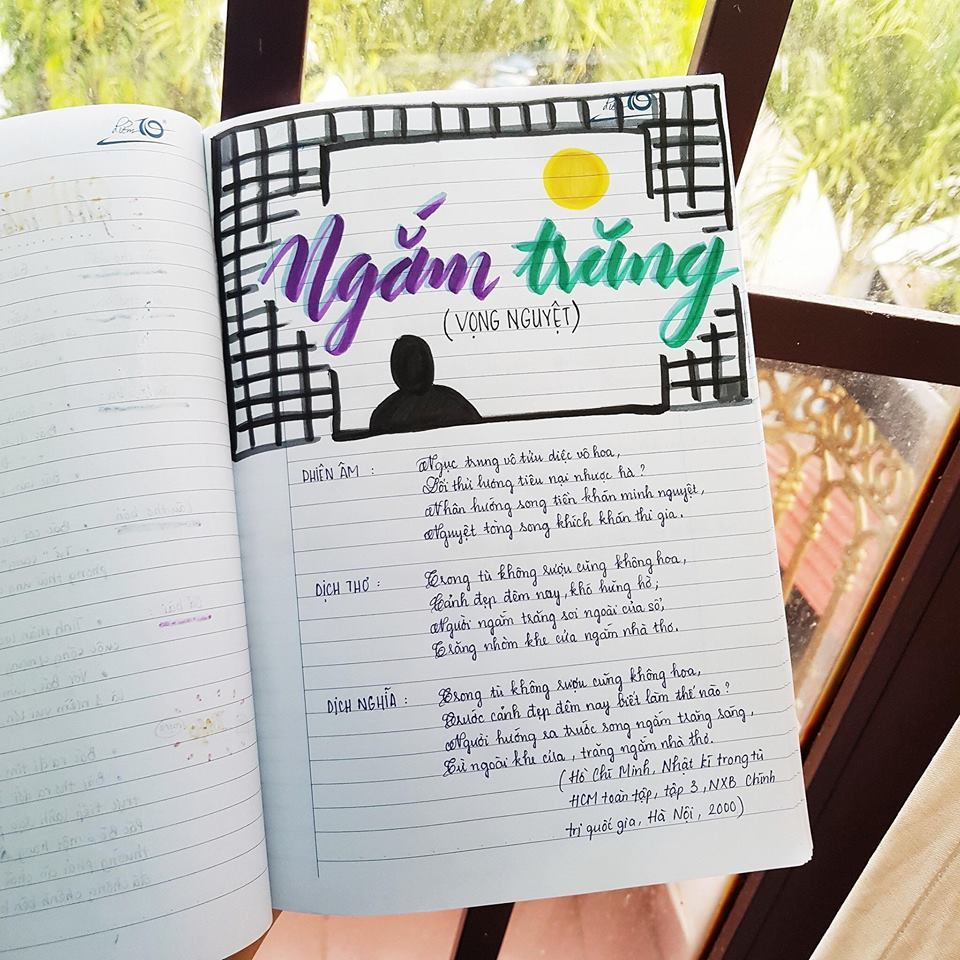 điểm 10
điểm 10
Ngắm trăng
(VỌNG NGUYỆT)
PHIÊN ÂM : Ngục trung vô tửu diệc vô hoa,
Đối thử lương tiêu nại nhược hà ?
Nhân hướng song tiền khán minh nguyệt,
Nguyệt tòng song khích khán thi gia.
DỊCH THƠ : Trong tù không rượu cũng không hoa,
Cảnh đẹp đêm nay, khó hững hờ;
Người ngắm trăng soi ngoài cửa sổ,
Trăng nhòm khe cửa ngắm nhà thơ.
DỊCH NGHĨA : Trong tù không rượu cũng không hoa,
Trước cảnh đẹp đêm nay biết làm thế nào ?
Người hướng ra trước song ngắm trăng sáng,
Từ ngoài khe cửa, trăng ngắm nhà thơ.
(Hồ Chí Minh, Nhật kí trong tù
HCM toàn tập, tập 3, NXB Chính
trị quốc gia, Hà Nội, 2000)